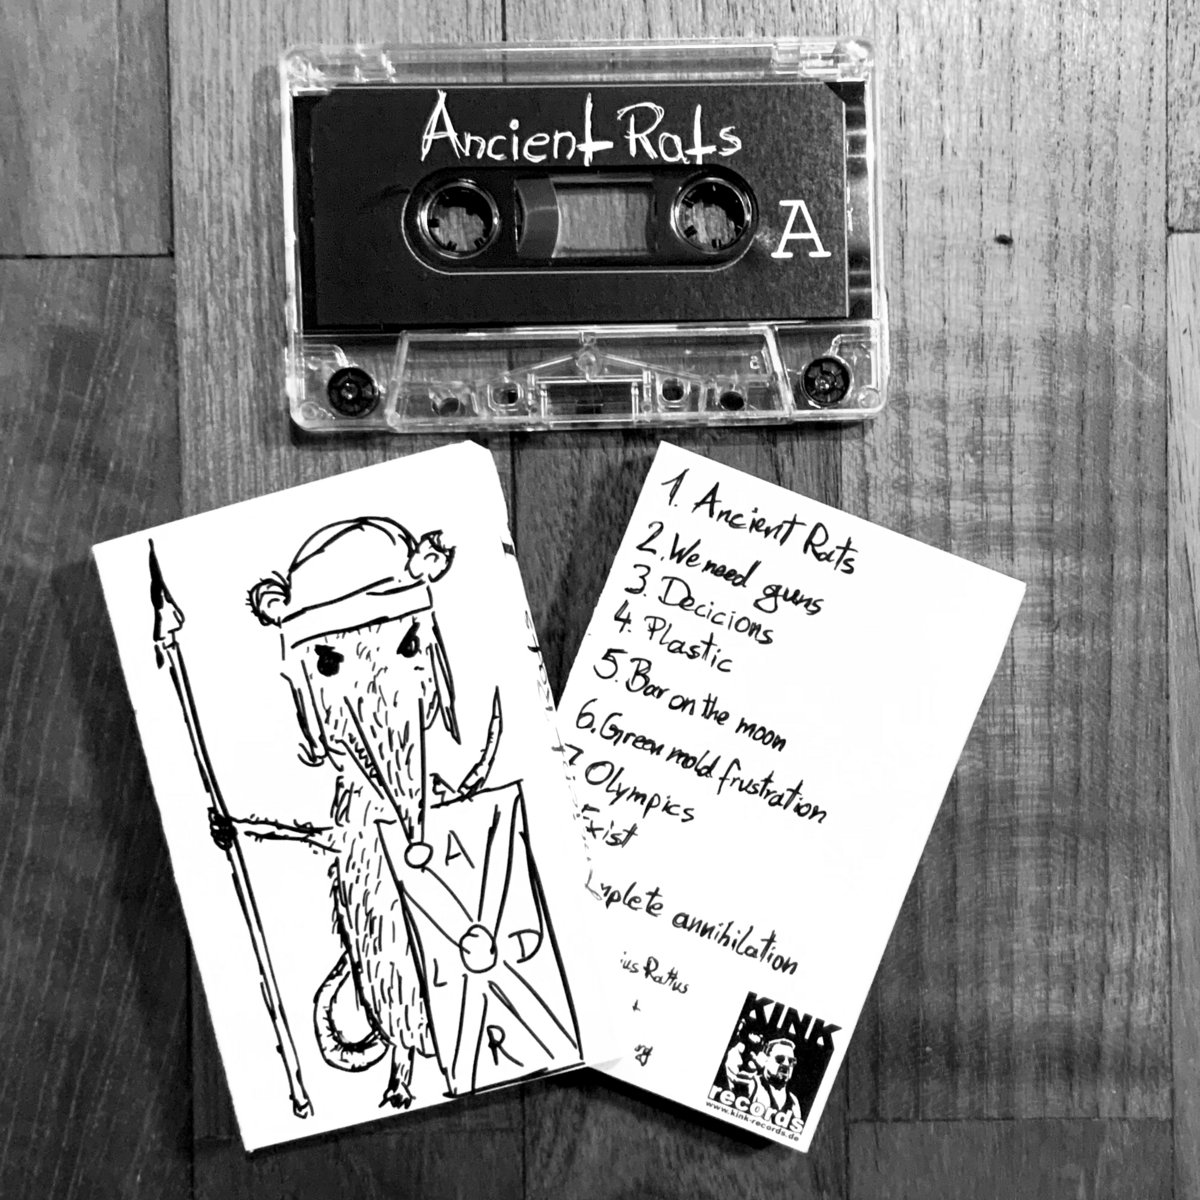 Ancient Rats
A
1. Ancient Rats
2. We need guns
3. Decicions
4. Plastic
5. Bar on the moon
6. Green mold frustration
7. Olympics
Exist
mplete annihilation
ius Rattus
+
A
D
L
R
KINK
records
www.kink-records.de